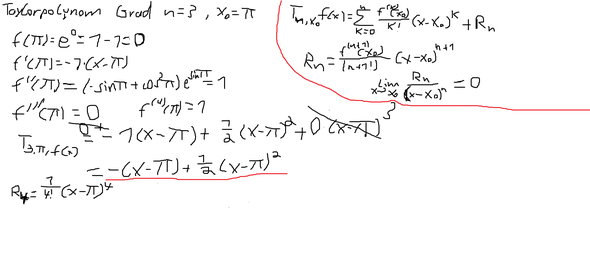 Taylorpolynom Grad n=3, x₀=π
f(π)=e⁰-1-1=0
f'(π)=-1·(x-π)
f''(π)=(-sinπ+cos²π)e^{sinπ}=1
f'''(π)=0 f⁽⁴⁾(π)=1
T_{3,π,f(x)} = 0+ = 1(x-π)+ 1/2 (x-π)²+0(x-π)³
= -(x-π)+ 1/2 (x-π)²
R₄=1/4! (x-π)⁴
T_{n,x₀}f(x)=∑_{k=0}^{n} f⁽ᵏ⁾(x₀)/k! (x-x₀)ᵏ+Rn
Rn= f⁽ⁿ⁺¹⁾(x₀)/(n+1)! (x-x₀)ⁿ⁺¹
lim_{x→x₀} Rn/(x-x₀)ⁿ=0